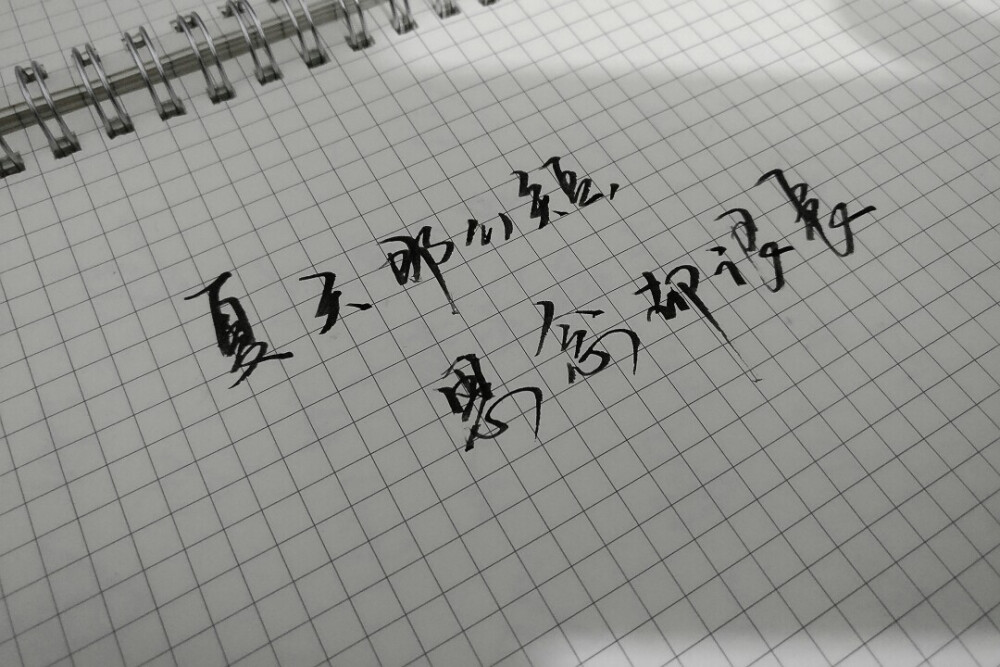 夏天那么短,
思念却很长